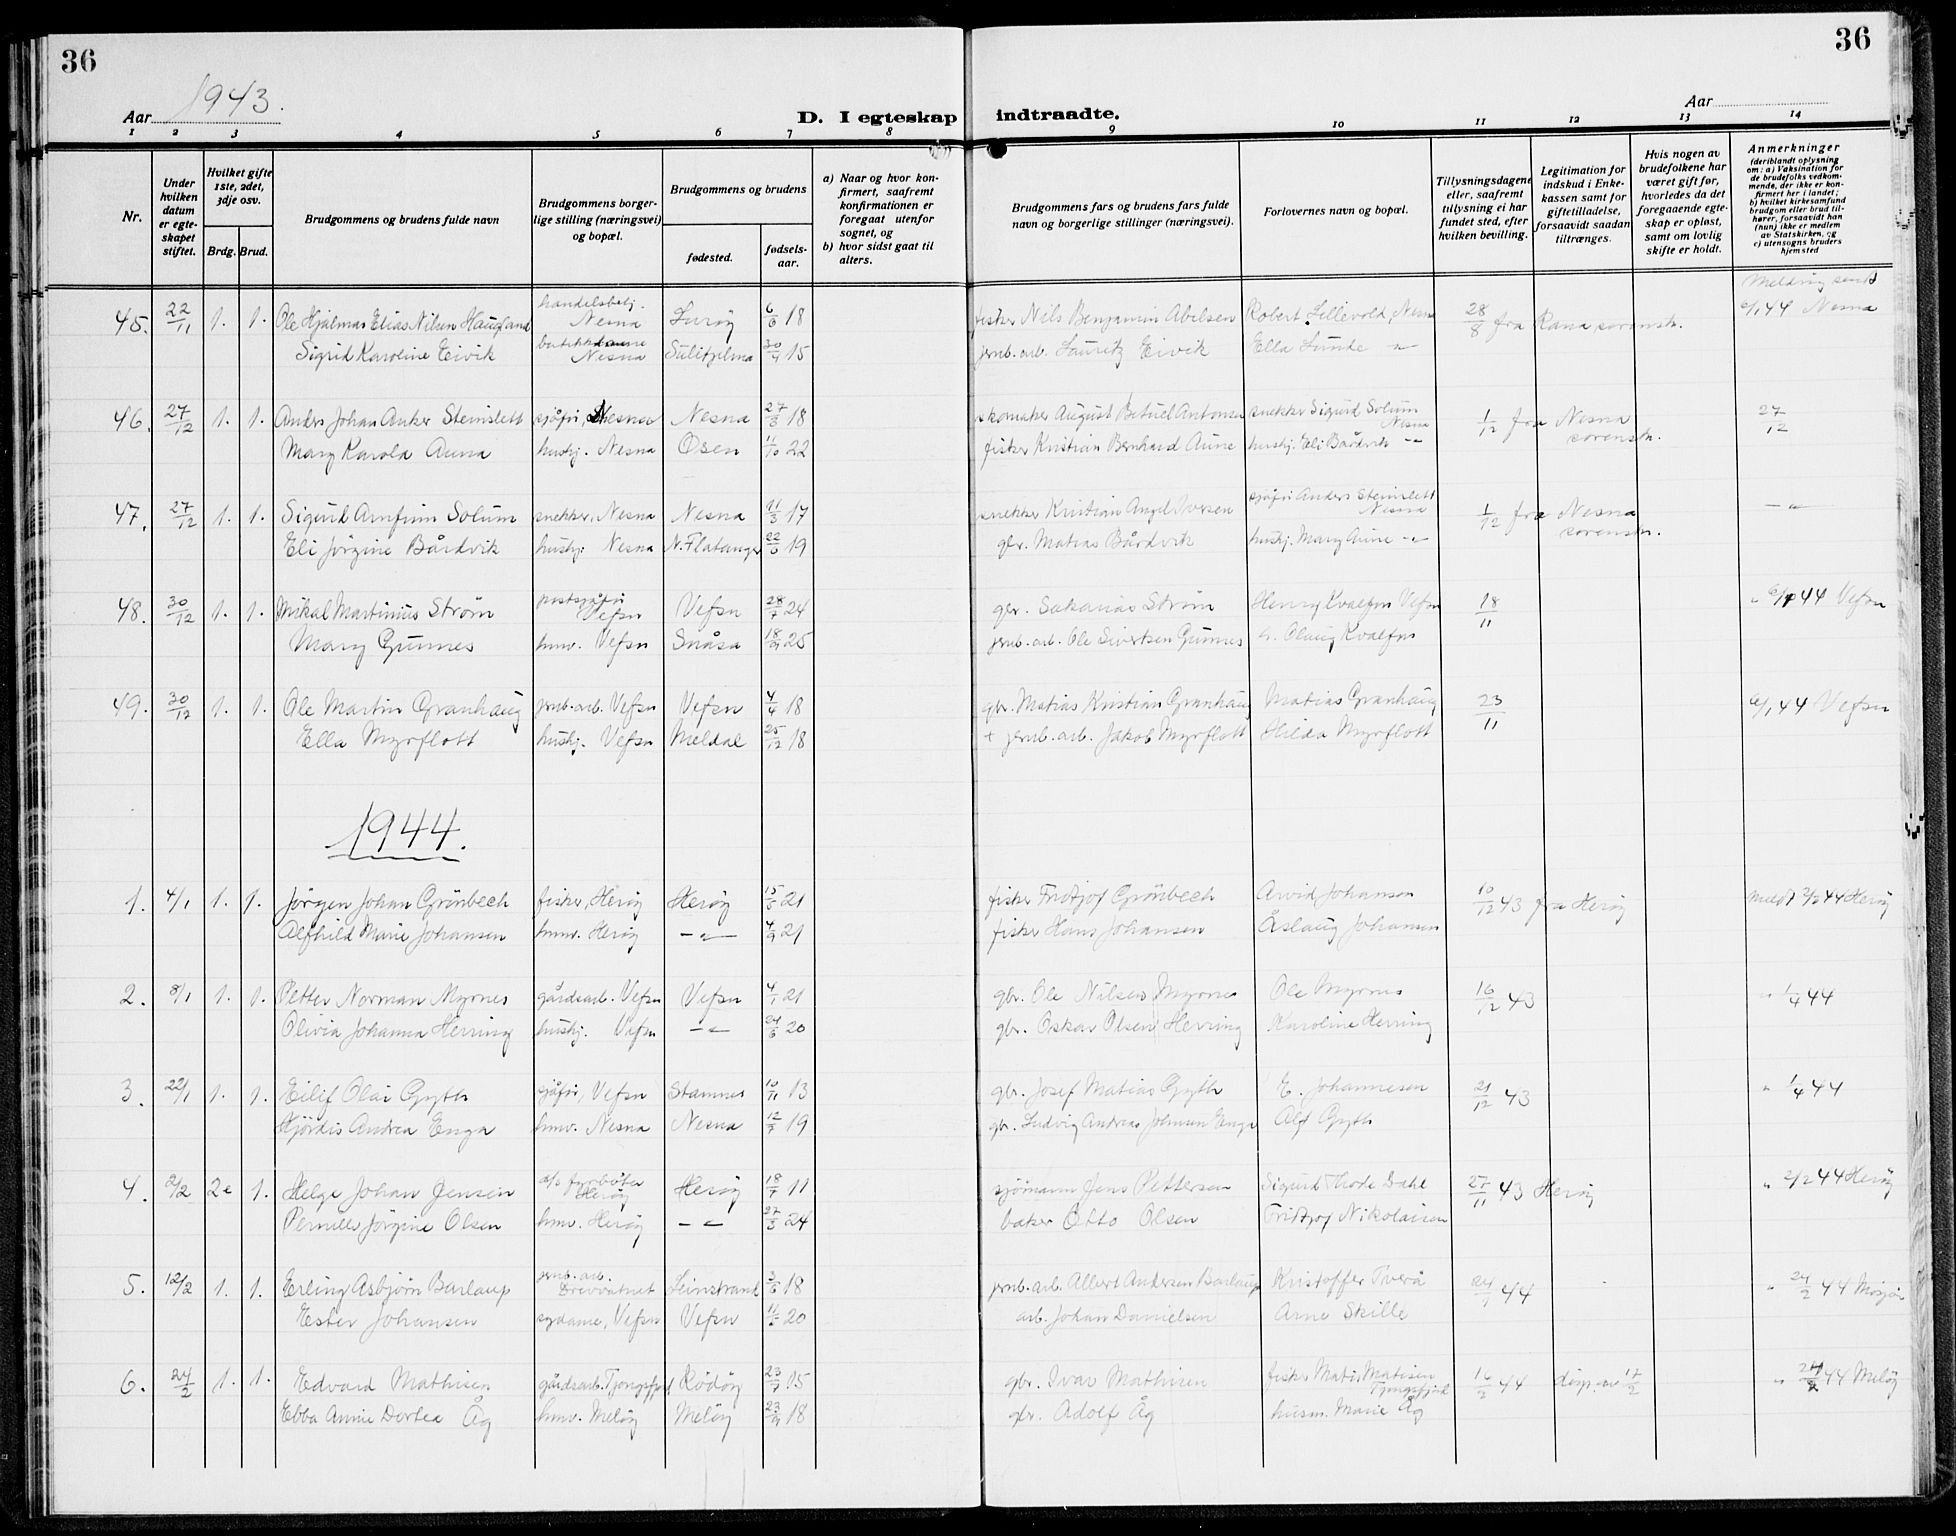 36
36
Aar 1943.
D. I egteskap indtraadte.
Aar
1 2 3 4 5 6 7 8 9 10 11 12 13 14
Nr.
Under hvilken datum er egteskapet stiftet.
Hvilket gifte 1ste, 2det, 3dje osv.
Brdg. Brud.
Brudgommens og brudens fulde navn
Brudgommens borgerlige stilling (næringsvei) og bopæl.
Brudgommens og brudens
fødested.
fødselsaar.
a) Naar og hvor konfirmert, saafremt konfirmationen er foregaat utenfor sognet, og
b) hvor sidst gaat til alters.
Brudgommens fars og brudens fars fulde navn og borgerlige stillinger (næringsvei).
Forlovernes navn og bopæl.
Tillysningsdagene eller, saafremt tillysning ei har fundet sted, efter hvilken bevilling.
Legitimation for indskud i Enkekassen samt for giftetilladelse, forsaavidt saadan tiltrænges.
Hvis nogen av brudefolkene har været gift før, hvorledes da det foregaaende egteskap er opløst, samt om lovlig skifte er holdt.
Anmerkninger (deriblandt oplysning om: a) Vaksination for de brudefolks vedkommende, der ikke er konfirmert her i landet; b) hvilket kirkesamfund brudgom eller brud tilhører, forsaavidt han (hun) ikke er medlem av Statskirken, og c) utensogns bruders hjemsted
Melding sendt
45. 22/11 1. 1. Ole Hjalmar Elias Nilsen Haugland Nesna Lurøy 6/6 18 fisker Nils Benjamin Abelsen Robert Lillevold, Nesna 28/8 fra Rana sorenskr. 6/1 44 Nesna
Sigrid Karoline Eivik Nesna Sulitjelma 30/9 15 jernb.arb. Lauritz Eivik Ella Lunde -"-
46. 27/12 1. 1. Anders Johan Anker Steinslett sjåfør, Nesna Nesna 27/3 18 skomaker August Betuel Antonsen snekker Sigurd Solum Nesna 1/12 fra Nesna sorenskr. 27/12
Mary Karola Aune hushj. Nesna Osen 11/10 22 fisker Kristian Bernhard Aune hushj. Eli Bårdvik -"-
47. 27/12 1. 1. Sigurd Arnfinn Solum snekker, Nesna Nesna 11/3 17 snekker Kristian Angel Iversen sjåfør Anders Steinslett Nesna 1/12 fra Nesna sorenskr. -"-
Eli Jørgine Bårdvik hushj. Nesna N. Flatanger 22/6 19 gbr. Matias Bårdvik hushj. Mary Aune -"-
48. 30/12 1. 1. Mikal Martinius Strøm postsjåfør Vefsn Vefsn 28/7 24 gbr. Sakarias Strøm Henry Kvalfors Vefsn 18/11 " 6/1 44 Vefsn
Mary Gunnes hmv. Vefsn Snåsa 18/9 25 jernb.arb. Ole Sivertsen Gunnes Olaug Kvalfors
49. 30/12 1. 1. Ole Martin Granhaug jernb.arb. Vefsn Vefsn 4/4 18 gbr. Matias Kristian Granhaug Matias Granhaug 23/11 6/1 44 Vefsn
Ella Myrflott hushj. Vefsn Meldal 25/12 18 + jernb.arb. Jakob Myrflott Hilda Myrflott
1944.
1. 4/1 1. 1. Jørgen Johan Grønbech fisker, Herøy Herøy 15/5 21 fisker Fridtjof Grönbech Arvid Johansen 10/12 43 fra Herøy meldt 2/2 44 Herøy
Alfhild Marie Johansen hmv. Herøy -"- 4/9 21 fisker Hans Johansen Åslaug Johansen
2. 8/1 1. 1. Petter Norman Myrnes gårdsarb. Vefsn Vefsn 4/1 21 gbr. Ole Nilsen Myrnes Ole Myrnes 16/12 43 " 1/4 44
Olivia Johanna Herring hushj. Vefsn -"- 24/6 20 gbr. Oskar Olsen Herring Karoline Herring
3. 22/1 1. 1. Eilif Olai Gyth sjåfør, Vefsn Stamnes 10/11 13 gbr. Josef Matias Gyth E. Johannesen 21/12 43 " 1/4 44
Hjördis Andrea Enga hmv. Nesna Nesna 12/7 19 gbr. Ludvig Andreas Johnsen Enga Alf Gyth
4. 2/2 2e 1. Helge Johan Jensen fyrbøter Herøy Herøy 18/7 11 sjömann Jens Pettersen Sigurd Thode Dahl 27/11 43 Herøy " 2/2 44 Herøy
Pernille Jørgine Olsen hmv. Herøy -"- 27/3 24 baker Otto Olsen Fridtjof Nikolaisen
5. 12/2 1. 1. Erling Asbjørn Barlaup jernb.arb. Drevvatnet Leinstrand 3/6 18 jernb.arb. Albert Andersen Barlaup Kristoffer Tverå 24/1 44 " 24/2 44 Mosjøen
Ester Johansen sydame, Vefsn Vefsn 20 arb. Johan Danielsen Arne Skille
6. 24/2 1. 1. Edvard Mathisen gårdsarb. Tjongsfjord Rödöy 23/7 15 gbr. Ivar Mathisen fisker Matis Matisen Tjongsfjord 16/2 44 disp. av 17/2 " 44 Meløy
Ebba Annie Dortea Åg hmv. Meløy Meløy 23/9 18 gbr. Adolf Åg husm. Marie Åg